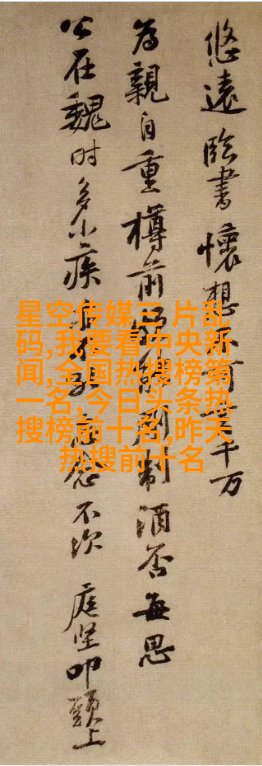 悠遠臨書懷想千万
為親自重樽前制酒否每思
公在魏时多小疾念不次 庭坚叩頭上
星空传媒三 片乱
码,我要看中央新
闻,全国热搜榜第
一名,今日头条热
搜榜前十名,昨天
热搜前十名